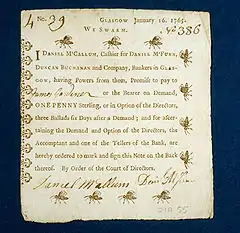 4 No. 39 GLASGOW January 16. 1765.
WE SWARM. No 386
I DANIEL McCALLUM, Cashier for DANIEL McFUNN,
DUNCAN BUCHANAN and Company, Bankers in GLAS-
GOW, having Powers from them, Promise to pay
James or the Bearer on Demand,
ONE PENNY Sterling, or in Option of the Directors,
three Ballads six Days after a Demand; and for ascer-
taining the Demand and Option of the Directors, the
Accomptant and one of the Tellers of the Bank, are
hereby ordered to mark and sign this Note on the Back
thereof. By Order of the Court of Directors.
Daniel McCallum